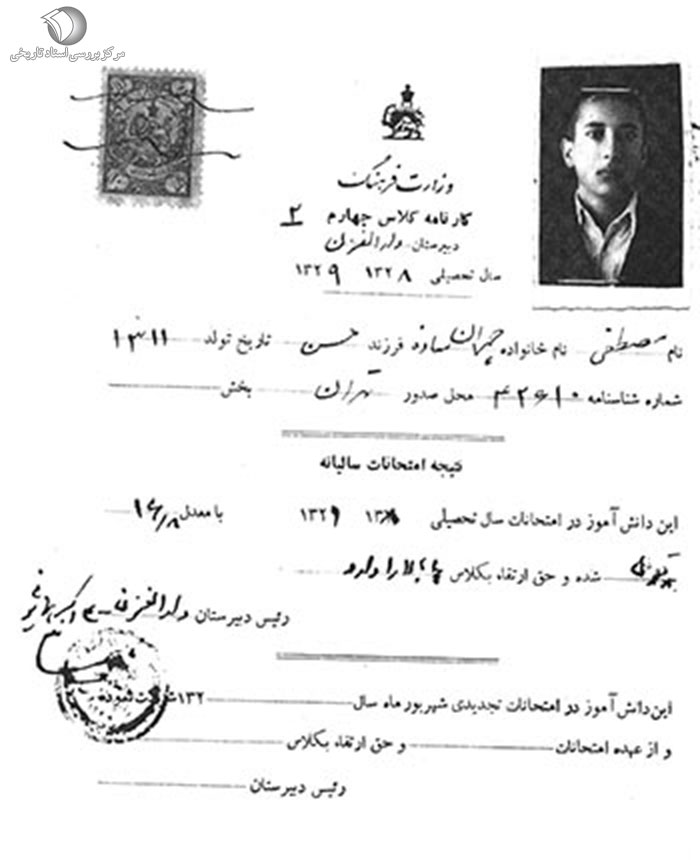 مرکز بررسی اسناد تاریخی
وزارت فرهنگ
کارنامه کلاس چهارم ۲
دبیرستان دارالفنون
سال تحصیلی ۱۳۲۸ ۱۳۲۹
نام مصطفی نام خانواده چمران ساوه فرزند حسن تاریخ تولد ۱۳۱۱
شماره شناسنامه محل صدور تهران بخش
نتیجه امتحانات سالیانه
این دانش آموز در امتحانات سال تحصیلی ۱۳۲۸ ۱۳۲۹ با معدل
شده و حق ارتقاء بکلاس را دارد
رئیس دبیرستان دارالفنون
این دانش آموز در امتحانات تجدیدی شهریور ماه سال ۱۳۲ شرکت نموده
و از عهده امتحانات و حق ارتقاء بکلاس
رئیس دبیرستان